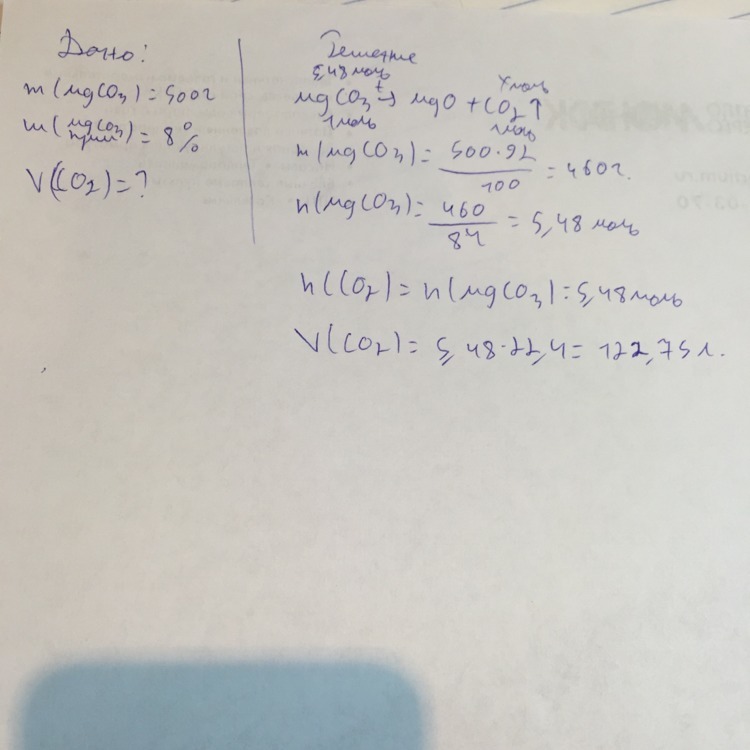 Дано:
m(MgCO3) = 500г
m(MgCO3) = 8%
прим
V(CO2) = ?
Решение
5,48 моль
x моль
MgCO3 t→ MgO + CO2↑
1 моль
1 моль
m(MgCO3) = 500·92 / 100 = 460г.
n(MgCO3) = 460 / 84 = 5,48 моль
n(CO2) = n(MgCO3) = 5,48 моль
V(CO2) = 5,48·22,4 = 122,75 л.